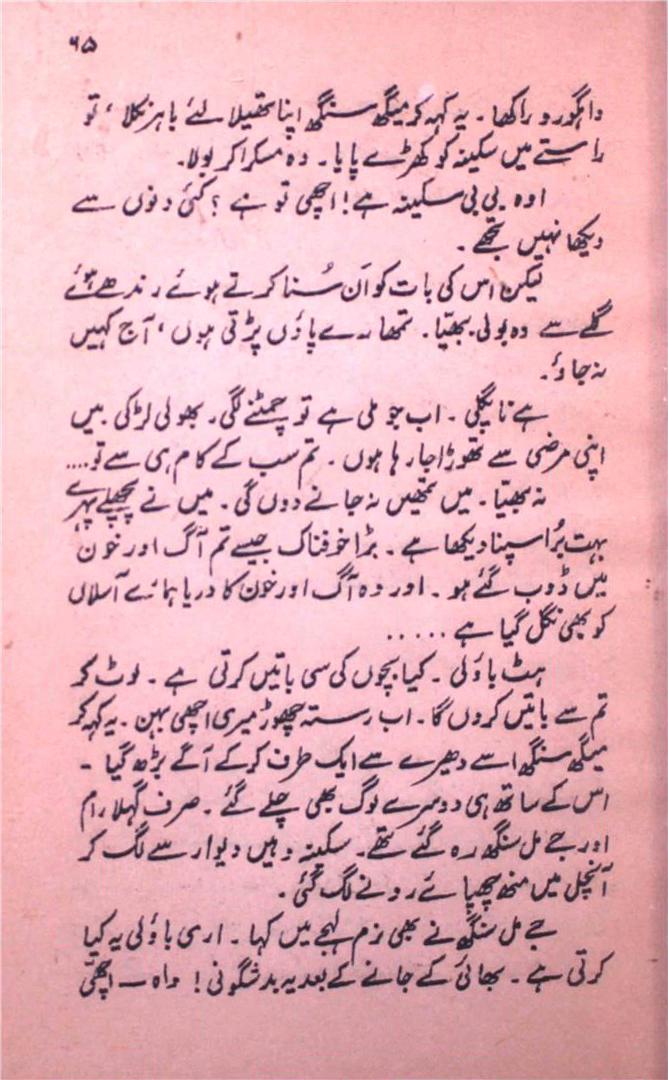 ۶۵
واہگورو راکھا۔ یہ کہہ کر میگھ سنگھ اپنا تھیلا لئے باہر نکلا، تو
راستے میں سکینہ کو کھڑے پایا۔ وہ مسکرا کر بولا۔
اوہ بی بی سکینہ ہے! اچھی تو ہے؟ کئی دنوں سے
دیکھا نہیں تجھے۔
لیکن اس کی بات کو اَن سُنا کرتے ہوئے رندھے ہوئے
گلے سے وہ بولی۔ بھیّا۔ تمھارے پاؤں پڑتی ہوں، آج کہیں
نہ جاؤ۔
ہے نا پگلی۔ اب جو ملی ہے تو چمٹنے لگی۔ بھولی لڑکی میں
اپنی مرضی سے تھوڑا جا رہا ہوں۔ تم سب کے کام ہی سے تو....
نہ بھیّا۔ میں تمھیں نہ جانے دوں گی۔ میں نے پچھلے پہرے
بہت بُرا سپنا دیکھا ہے۔ بڑا خوفناک جیسے تم آگ اور خون
میں ڈوب گئے ہو۔ اور وہ آگ اور خون کا دریا ہمارے آسلاں
کو بھی نگل گیا ہے .....
ہٹ باؤلی۔ کیا بچوں کی سی باتیں کرتی ہے۔ لوٹ کر
تم سے باتیں کروں گا۔ اب رستہ چھوڑ میری اچھی بہن۔ یہ کہہ کر
میگھ سنگھ اسے دھیرے سے ایک طرف کرکے آگے بڑھ گیا۔
اس کے ساتھ ہی دوسرے لوگ بھی چلے گئے۔ صرف گہلا رام
اور جے مل سنگھ رہ گئے تھے۔ سکینہ وہیں دیوار سے لگ کر
آنچل میں منھ چھپائے رونے لگ گئی۔
جے مل سنگھ نے بھی نرم لہجے میں کہا۔ اری باؤلی یہ کیا
کرتی ہے۔ بھائی کے جانے کے بعد یہ بدشگونی! واہ — اچھی